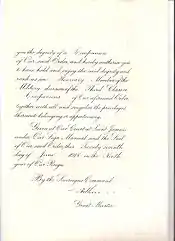 you the dignity of a Companion
of Our said Order, and hereby authorise you
to have hold and enjoy the said dignity and
rank as an Honorary Member of the
Military Division of the Third Class or
Companions of Our aforesaid Order,
together with all and singular the privileges
thereunto belonging or appertaining.
Given at Our Court at Saint James's
under Our Sign Manual and the Seal
of Our said Order, this Twenty seventh
day of June 1918 in the Ninth
year of Our Reign.
By the Sovereign's Command
Grand Master